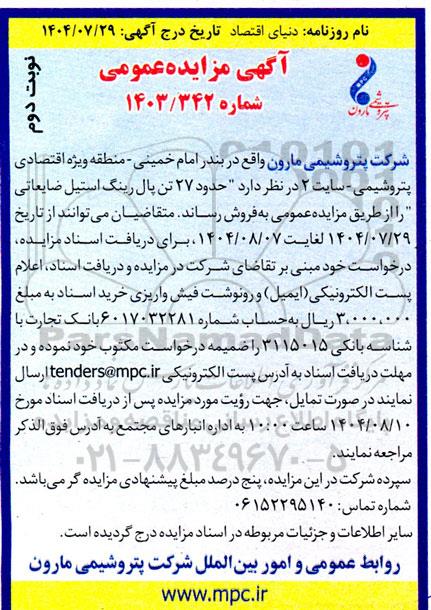 نام روزنامه: دنیای اقتصاد  تاریخ درج آگهی: ۱۴۰۴/۰۷/۲۹
آگهی مزایده عمومی
شماره ۱۴۰۳/۳۴۲
نوبت دوم
پتروشیمی مارون
شرکت پتروشیمی مارون واقع در بندر امام خمینی - منطقه ویژه اقتصادی
پتروشیمی - سایت ۲ در نظر دارد " حدود ۲۷ تن پال رینگ استیل ضایعاتی
" را از طریق مزایده عمومی به‌فروش رساند. متقاضیان می‌توانند از تاریخ
۱۴۰۴/۰۷/۲۹ لغایت ۱۴۰۴/۰۸/۰۷، برای دریافت اسناد مزایده،
درخواست خود مبنی بر تقاضای شرکت در مزایده و دریافت اسناد، اعلام
پست الکترونیکی (ایمیل) و رونوشت فیش واریزی خرید اسناد به مبلغ
۳,۰۰۰,۰۰۰ ریال به‌حساب شماره ۶۰۱۷۰۳۲۲۸۱ بانک تجارت با
شناسه بانکی ۳۱۱۵۰۱۵ را ضمیمه درخواست مکتوب خود نموده و در
مهلت دریافت اسناد به آدرس پست الکترونیکی tenders@mpc.ir ارسال
نمایند در صورت تمایل، جهت رؤیت مورد مزایده پس از دریافت اسناد مورخ
۱۴۰۴/۰۸/۱۰ ساعت ۱۰:۰۰ به اداره انبارهای مجتمع به آدرس فوق الذکر
مراجعه نمایند.
سپرده شرکت در این مزایده، پنج درصد مبلغ پیشنهادی مزایده گر می‌باشد.
شماره تماس: ۰۶۱۵۲۲۹۵۱۴۰
سایر اطلاعات و جزئیات مربوطه در اسناد مزایده درج گردیده است.
روابط عمومی و امور بین الملل شرکت پتروشیمی مارون
www.mpc.ir
۰۲۱-۸۸۳۴۹۶۷۰-۵